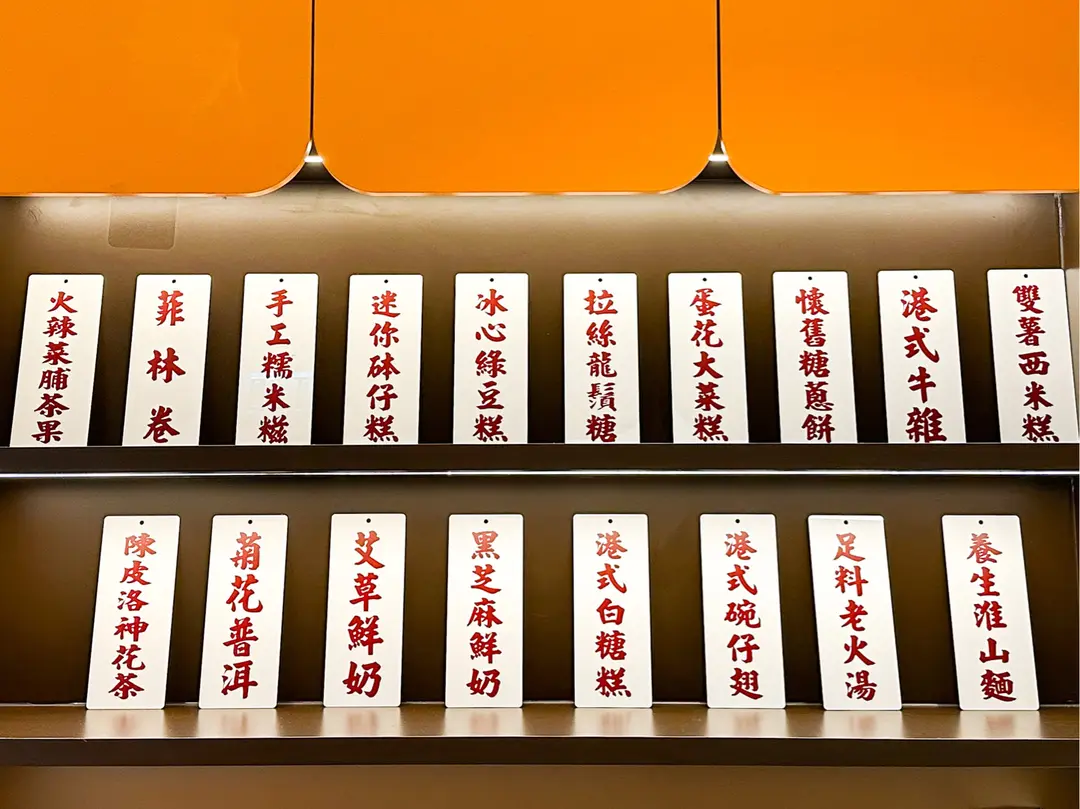 火辣菜脯茶果
菲林卷
手工糯米糍
迷你砵仔糕
冰心綠豆糕
拉絲龍鬚糖
蛋花大菜糕
懷舊糖蔥餅
港式牛雜
雙薯西米糕
陳皮洛神花茶
菊花普洱
艾草鮮奶
黑芝麻鮮奶
港式白糖糕
港式碗仔翅
足料老火湯
養生淮山麵